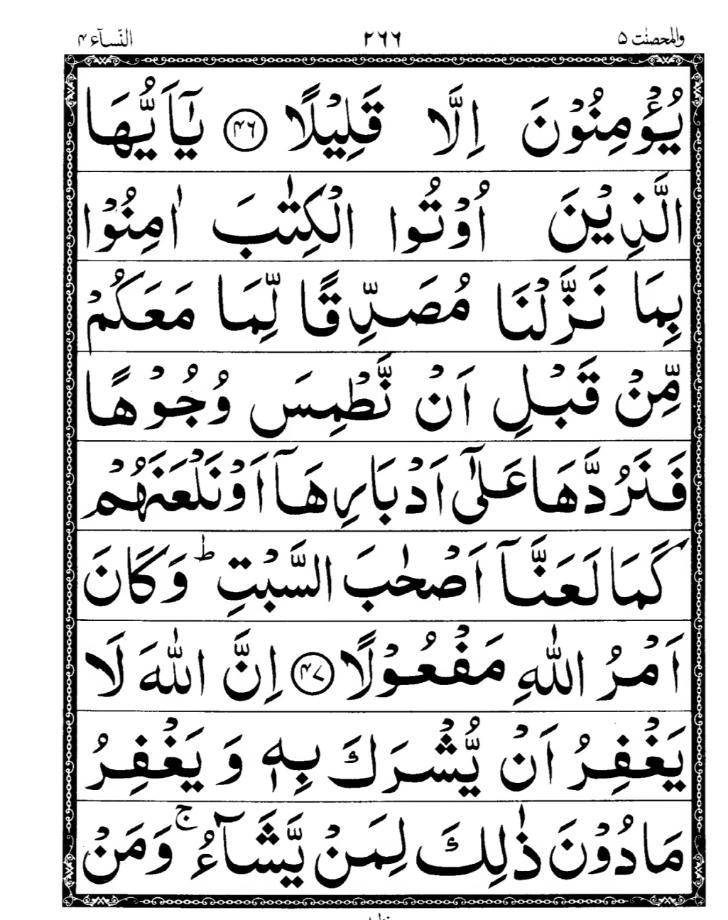 والمحصنت ۵ ۲۶۶ النّسآء ۴
يُؤْمِنُوْنَ اِلَّا قَلِيْلًا ۴۶ يٰۤاَيُّهَا
الَّذِيْنَ اُوْتُوا الْكِتٰبَ اٰمِنُوْا
بِمَا نَزَّلْنَا مُصَدِّقًا لِّمَا مَعَكُمْ
مِّنْ قَبْلِ اَنْ نَّطْمِسَ وُجُوْهًا
فَنَرُدَّهَا عَلٰۤى اَدْبَارِهَاۤ اَوْ نَلْعَنَهُمْ
كَمَا لَعَنَّاۤ اَصْحٰبَ السَّبْتِ ؕ وَكَانَ
اَمْرُ اللّٰهِ مَفْعُوْلًا ۴۷ اِنَّ اللّٰهَ لَا
يَغْفِرُ اَنْ يُّشْرَكَ بِهٖ وَ يَغْفِرُ
مَا دُوْنَ ذٰلِكَ لِمَنْ يَّشَآءُ ۚ وَمَنْ